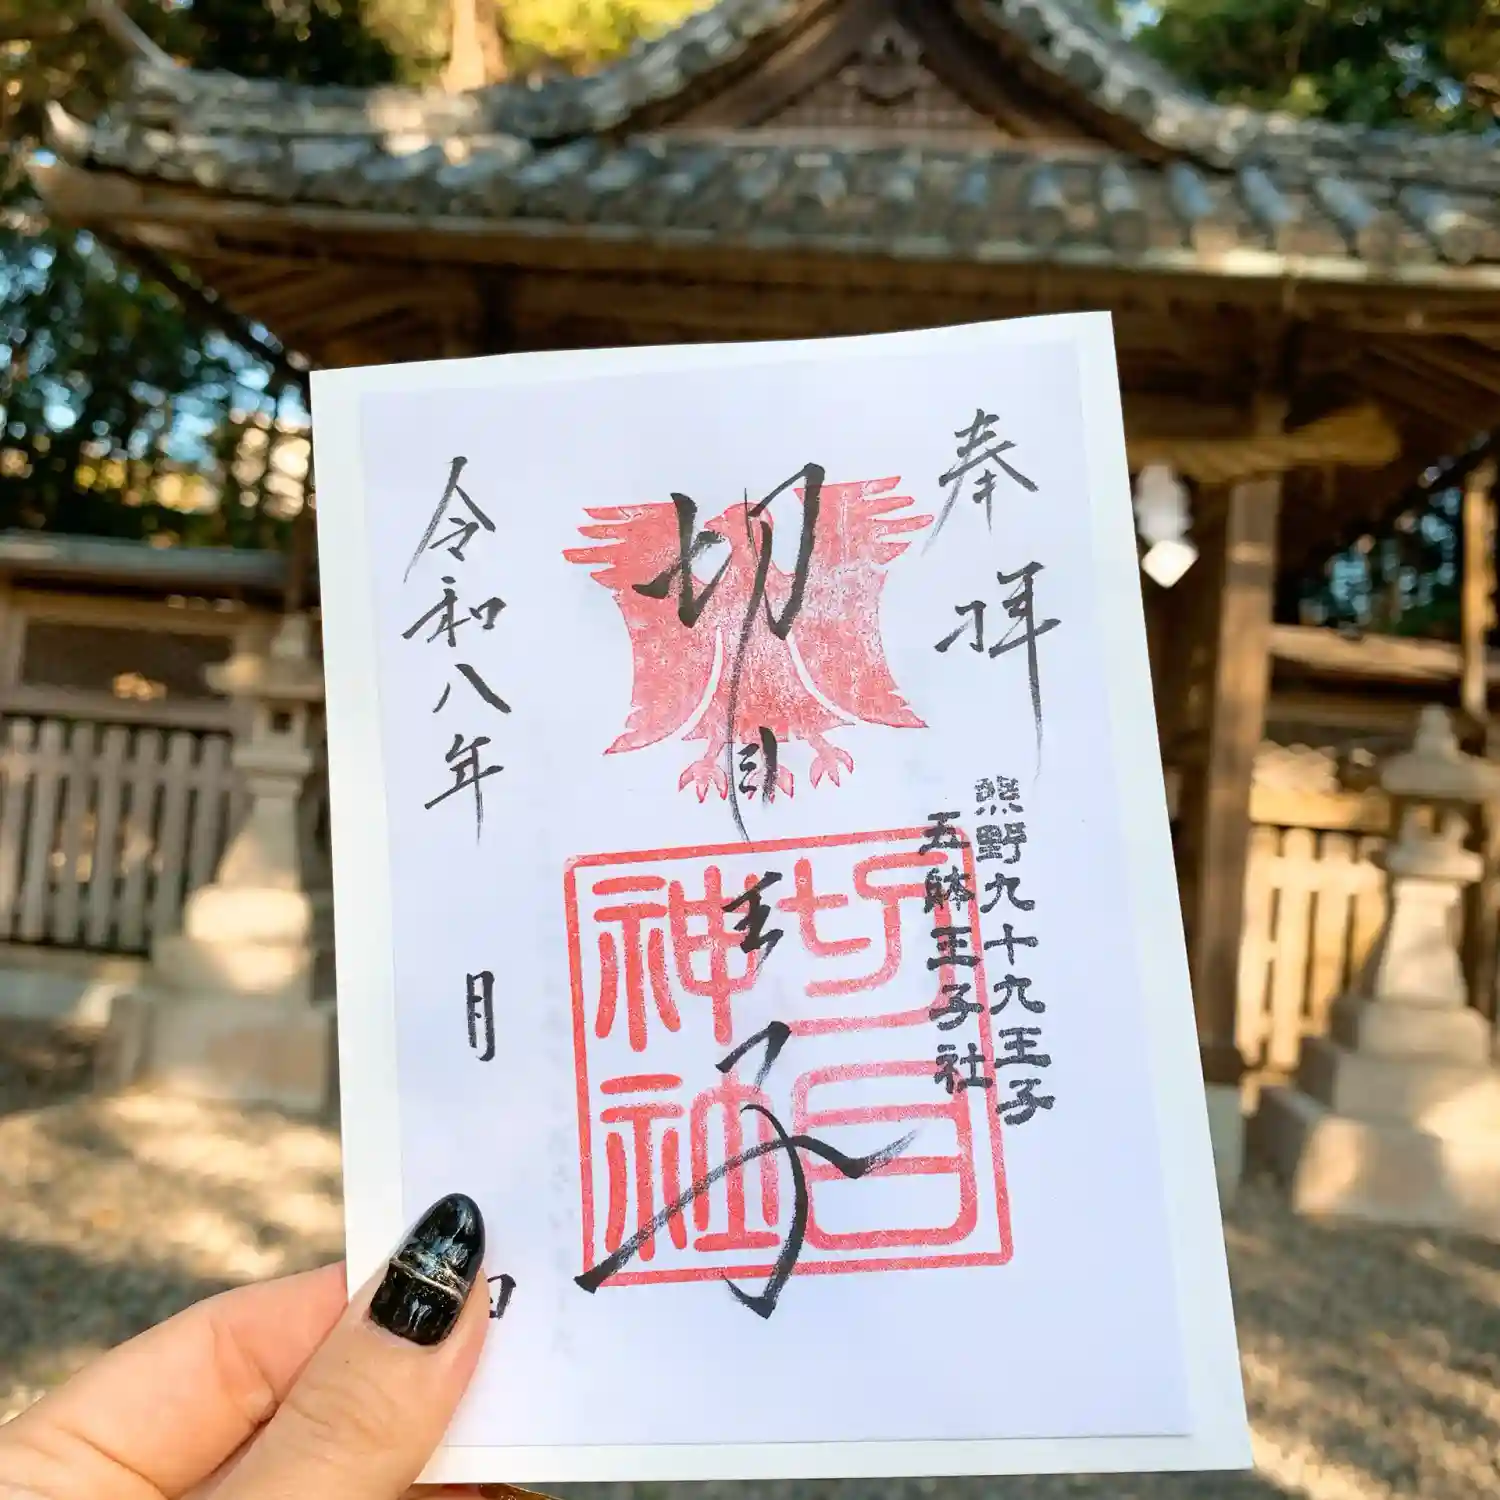 奉拝
熊野九十九王子
五躰王子社
切目王子
切目
神社
令和八年
月
日